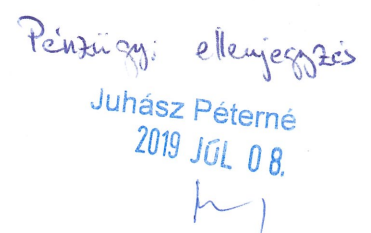 Pénzügyi ellenjegyzés
Juhász Péterné
2019 JÚL 08.